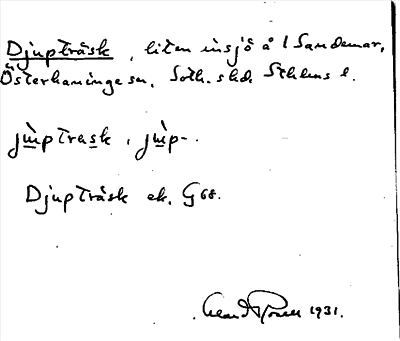 Djupträsk, liten insjö å l Sandemar,
Österhaninge sn, Soth. shd. Sthlms l.
jùptrask, jùp-.
Djupträsk ek. G 68.
1931.